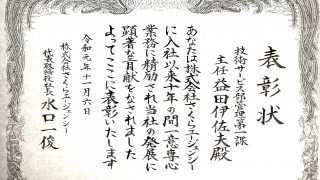 表彰状
技術サービス部管理第一課
主任益田伊佐夫殿
あなたは株式会社さくらエージェンシー
に入社以来十年の間一意専心
業務に精励され当社の発展に
顕著な貢献をなされました
よってここに表彰いたします
令和元年十一月六日
株式会社さくらエージェンシー
代表取締役社長 水口一俊